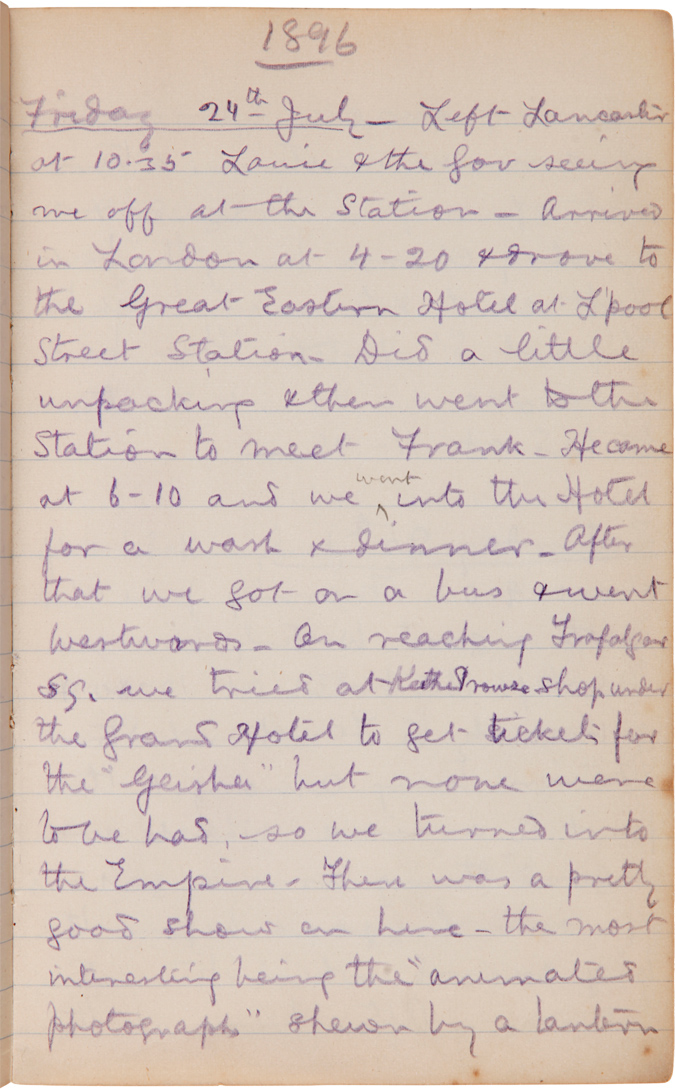 1896
Friday 24th July - Left Lancaster
at 10.35 Louie & the Gov seeing
me off at the Station - Arrived
in London at 4-20 & drove to
the Great Eastern Hotel at L'pool
Street Station - Did a little
unpacking & then went to the
Station to meet Frank - He came
at 6-10 and we went into the Hotel
for a wash & dinner - After
that we got on a bus & went
Westwards - On reaching Trafalgar
Sq. we tried at Keith Prowse shop under
the Grand Hotel to get tickets for
the "Geisha" but none were
to be had, so we turned into
the Empire - There was a pretty
good show on here - the most
interesting being the "animated
photographs" shewn by a lantern